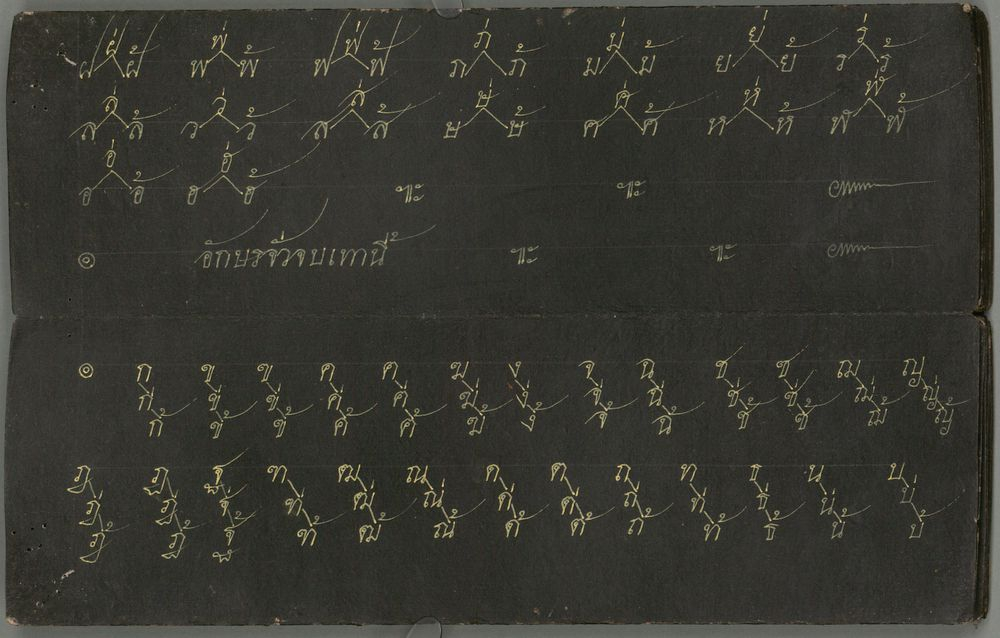 ฝ่ พ่ ฟ่ ภ่ ม่ ย่ ร่
ฝ ฝ้ พ พ้ ฟ ฟ้ ภ ภ้ ม ม้ ย ย้ ร ร้
ล่ ว่ ส่ ษ่ ศ่ ห่ ฬ่
ล ล้ ว ว้ ส ส้ ษ ษ้ ศ ศ้ ห ห้ ฬ ฬ้
อ่ ฮ่
อ อ้ ฮ ฮ้ ฯะ ฯะ
๏ อักษรจั่วจบเท่านี้ ฯะ ฯะ
๏ ก ข ฃ ค ฅ ฆ ง จ ฉ ช ซ ฌ ญ
ก่ ข่ ฃ่ ค่ ฅ่ ฆ่ ง่ จ่ ฉ่ ช่ ซ่ ฌ่ ญ่
ก้ ข้ ฃ้ ค้ ฅ้ ฆ้ ง้ จ้ ฉ้ ช้ ซ้ ฌ้ ญ้
ฎ ฏ ฐ ฑ ฒ ณ ด ต ถ ท ธ น บ
ฎ่ ฏ่ ฐ่ ฑ่ ฒ่ ณ่ ด่ ต่ ถ่ ท่ ธ่ น่ บ่
ฎ้ ฏ้ ฐ้ ฑ้ ฒ้ ณ้ ด้ ต้ ถ้ ท้ ธ้ น้ บ้